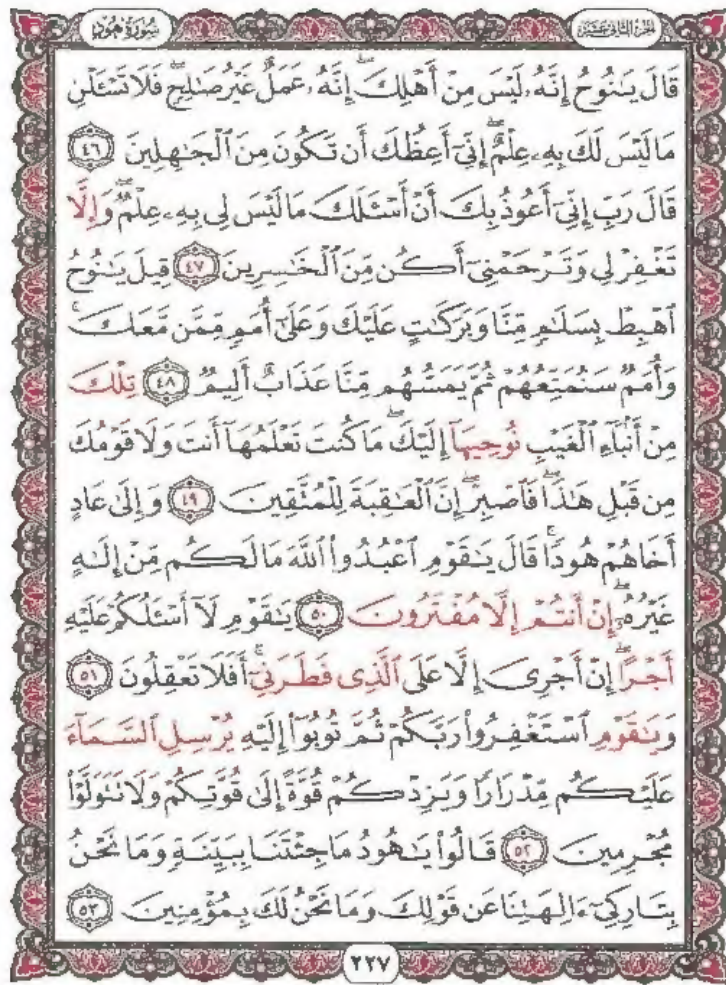 الجزء الثاني عشر
سورة هود
قَالَ يَـٰنُوحُ إِنَّهُۥ لَيْسَ مِنْ أَهْلِكَ ۖ إِنَّهُۥ عَمَلٌ غَيْرُ صَـٰلِحٍ ۖ فَلَا تَسْـَٔلْنِ
مَا لَيْسَ لَكَ بِهِۦ عِلْمٌ ۖ إِنِّىٓ أَعِظُكَ أَن تَكُونَ مِنَ ٱلْجَـٰهِلِينَ ٤٦
قَالَ رَبِّ إِنِّىٓ أَعُوذُ بِكَ أَنْ أَسْـَٔلَكَ مَا لَيْسَ لِى بِهِۦ عِلْمٌ ۖ وَإِلَّا
تَغْفِرْ لِى وَتَرْحَمْنِىٓ أَكُن مِّنَ ٱلْخَـٰسِرِينَ ٤٧ قِيلَ يَـٰنُوحُ
ٱهْبِطْ بِسَلَـٰمٍ مِّنَّا وَبَرَكَـٰتٍ عَلَيْكَ وَعَلَىٰٓ أُمَمٍ مِّمَّن مَّعَكَ ۚ
وَأُمَمٌ سَنُمَتِّعُهُمْ ثُمَّ يَمَسُّهُم مِّنَّا عَذَابٌ أَلِيمٌ ٤٨ تِلْكَ
مِنْ أَنۢبَآءِ ٱلْغَيْبِ نُوحِيهَآ إِلَيْكَ ۖ مَا كُنتَ تَعْلَمُهَآ أَنتَ وَلَا قَوْمُكَ
مِن قَبْلِ هَـٰذَا ۖ فَٱصْبِرْ ۖ إِنَّ ٱلْعَـٰقِبَةَ لِلْمُتَّقِينَ ٤٩ وَإِلَىٰ عَادٍ
أَخَاهُمْ هُودًا ۚ قَالَ يَـٰقَوْمِ ٱعْبُدُوا۟ ٱللَّهَ مَا لَكُم مِّنْ إِلَـٰهٍ
غَيْرُهُۥٓ ۖ إِنْ أَنتُمْ إِلَّا مُفْتَرُونَ ٥٠ يَـٰقَوْمِ لَآ أَسْـَٔلُكُمْ عَلَيْهِ
أَجْرًا ۖ إِنْ أَجْرِىَ إِلَّا عَلَى ٱلَّذِى فَطَرَنِىٓ ۚ أَفَلَا تَعْقِلُونَ ٥١
وَيَـٰقَوْمِ ٱسْتَغْفِرُوا۟ رَبَّكُمْ ثُمَّ تُوبُوٓا۟ إِلَيْهِ يُرْسِلِ ٱلسَّمَآءَ
عَلَيْكُم مِّدْرَارًا وَيَزِدْكُمْ قُوَّةً إِلَىٰ قُوَّتِكُمْ وَلَا تَتَوَلَّوْا۟
مُجْرِمِينَ ٥٢ قَالُوا۟ يَـٰهُودُ مَا جِئْتَنَا بِبَيِّنَةٍ وَمَا نَحْنُ
بِتَارِكِىٓ ءَالِهَتِنَا عَن قَوْلِكَ وَمَا نَحْنُ لَكَ بِمُؤْمِنِينَ ٥٣
٢٢٧